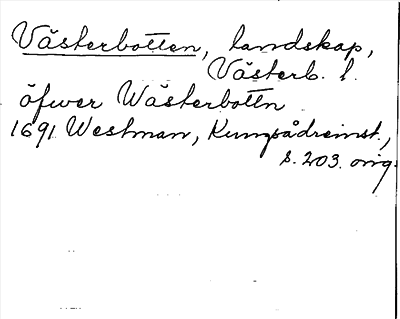 Västerbotten, landskap,
Västerb. l.
öfwer Wästerbottn
1691 Westman, Kungsådreinst.,
s. 203. orig.